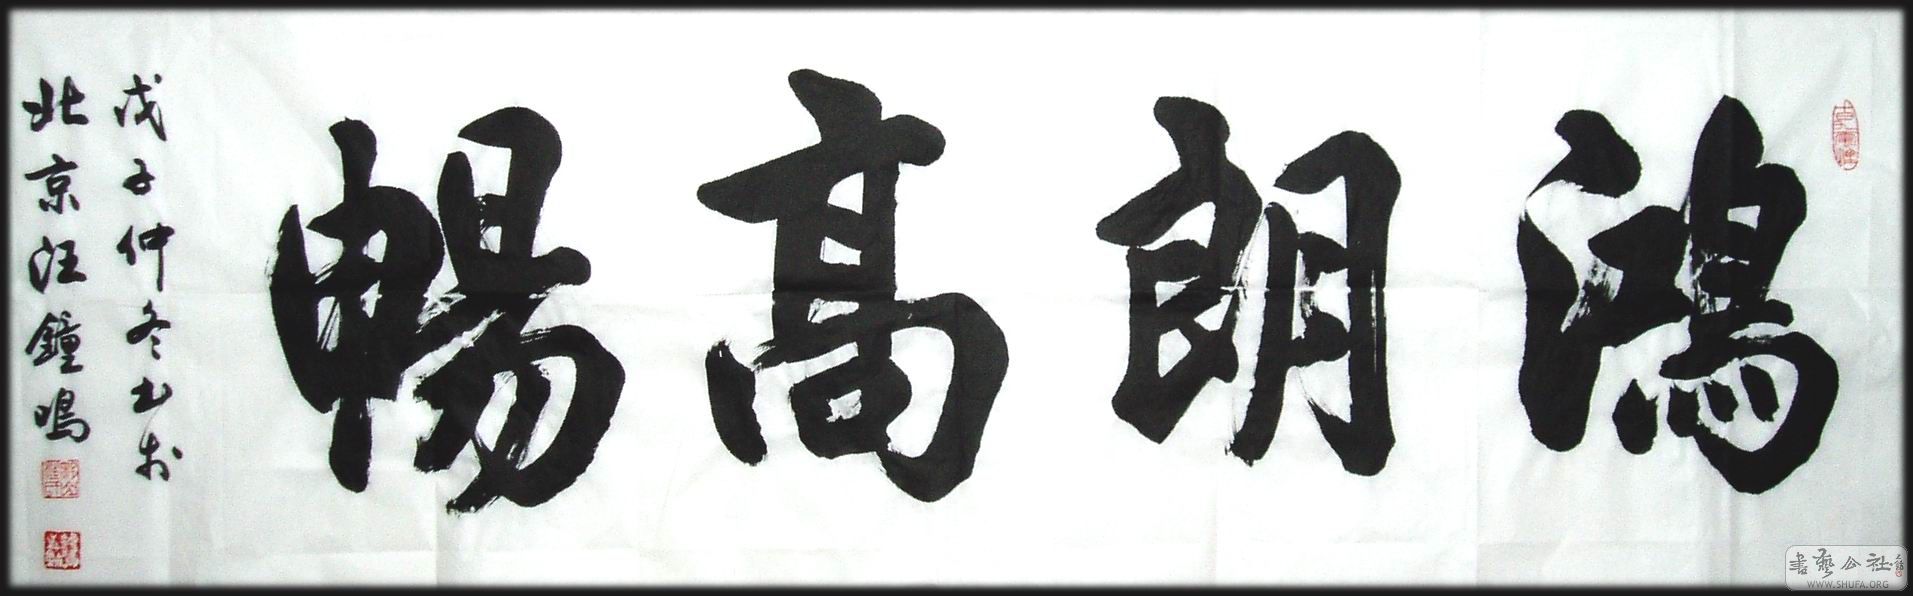 鴻朗高暢
戊子仲冬书於
北京汪鐘鳴
書藝公社
WWW.SHUFA.ORG